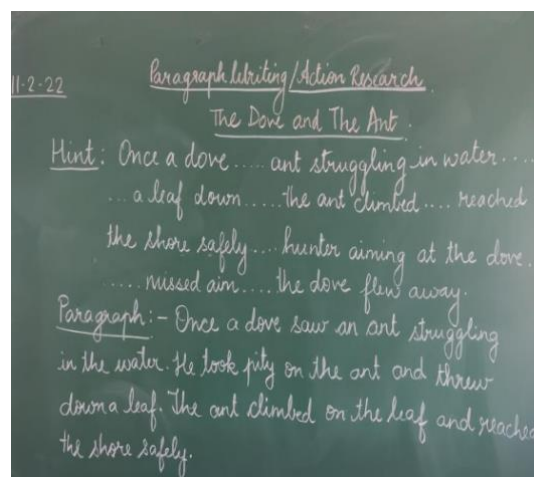 11-2-22
Paragraph Writing/Action Research.
The Dove and The Ant.
Hint: Once a dove..... ant struggling in water....
... a leaf down..... the ant climbed.... reached
the shore safely.... hunter aiming at the dove.
...... missed aim.... the dove flew away.
Paragraph:- Once a dove saw an ant struggling
in the water. He took pity on the ant and threw
down a leaf. The ant climbed on the leaf and reached
the shore safely.